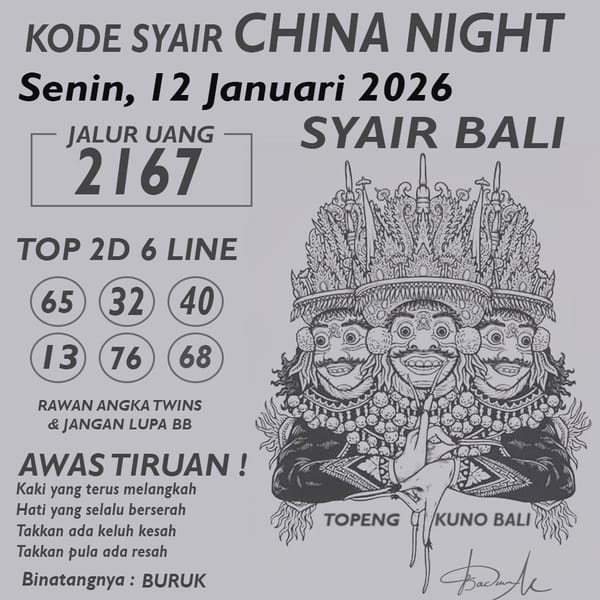 KODE SYAIR CHINA NIGHT
Senin, 12 Januari 2026
JALUR UANG
2167
SYAIR BALI
TOP 2D 6 LINE
65 32 40
13 76 68
RAWAN ANGKA TWINS
& JANGAN LUPA BB
AWAS TIRUAN !
Kaki yang terus melangkah
Hati yang selalu berserah
Takkan ada keluh kesah
Takkan pula ada resah
Binatangnya : BURUK
TOPENG KUNO BALI